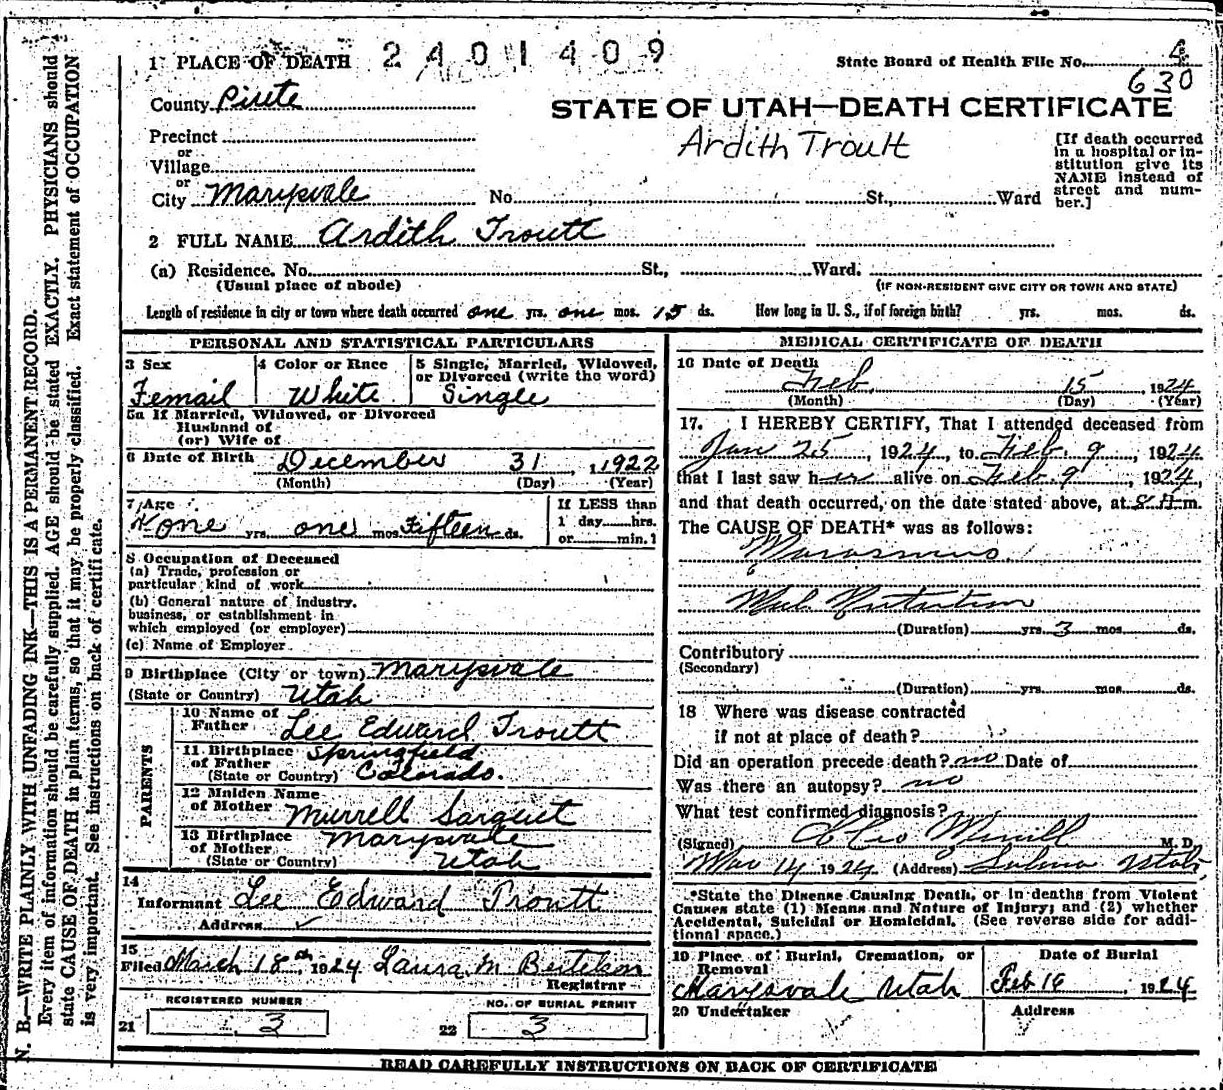 1 PLACE OF DEATH 2401409 State Board of Health File No. 4
630
County Piute
STATE OF UTAH—DEATH CERTIFICATE
Ardith Troutt
Precinct
or
Village
or
City Marysvale No. St., Ward
[If death occurred
in a hospital or in-
stitution give its
NAME instead of
street and num-
ber.]
2 FULL NAME Ardith Troutt
(a) Residence. No. St., Ward.
(Usual place of abode) (IF NON-RESIDENT GIVE CITY OR TOWN AND STATE)
Length of residence in city or town where death occurred one yrs. one mos. 15 ds. How long in U. S., if of foreign birth? yrs. mos. ds.
PERSONAL AND STATISTICAL PARTICULARS
3 Sex 4 Color or Race 5 Single, Married, Widowed,
or Divorced (write the word)
Femail White Single
5a If Married, Widowed, or Divorced
Husband of
(or) Wife of
6 Date of Birth December 31, 1922
(Month) (Day) (Year)
7 Age If LESS than
1 day hrs.
or min.?
one yrs. one mos. Fifteen ds.
8 Occupation of Deceased
(a) Trade, profession or
particular kind of work
(b) General nature of industry,
business, or establishment in
which employed (or employer)
(c) Name of Employer
9 Birthplace (City or town) Marysvale
(State or Country) Utah
PARENTS
10 Name of
Father Lee Edward Troutt
11 Birthplace
of Father Springfield
(State or Country) Colorado.
12 Maiden Name
of Mother Murrell Sargent
13 Birthplace
of Mother Marysvale
(State or Country) Utah
14
Informant Lee Edward Troutt
Address
15
Filed March 18th, 1924 Laura M Bertelson
Registrar
REGISTERED NUMBER NO. OF BURIAL PERMIT
21 3 22 3
MEDICAL CERTIFICATE OF DEATH
16 Date of Death
Feb. 15 1924
(Month) (Day) (Year)
17. I HEREBY CERTIFY, That I attended deceased from
Jan 25, 1924, to Feb. 9, 1924
that I last saw her alive on Feb. 9, 1924,
and that death occurred, on the date stated above, at 8 A m.
The CAUSE OF DEATH* was as follows:
Marasmus
Mal. Nutrition
(Duration) yrs. 3 mos. ds.
Contributory
(Secondary)
(Duration) yrs. mos. ds.
18 Where was disease contracted
if not at place of death?
Did an operation precede death? no Date of
Was there an autopsy? no
What test confirmed diagnosis?
(Signed) Leo Merrill M. D.
Mar 14 1924 (Address) Salina Utah
*State the Disease Causing Death, or in deaths from Violent
Causes state (1) Means and Nature of Injury; and (2) whether
Accidental, Suicidal or Homicidal. (See reverse side for addi-
tional space.)
19 Place of Burial, Cremation, or
Removal
Date of Burial
Marysvale Utah Feb 16, 1924
20 Undertaker Address
READ CAREFULLY INSTRUCTIONS ON BACK OF CERTIFICATE
N. B.—WRITE PLAINLY WITH UNFADING INK—THIS IS A PERMANENT RECORD.
Every item of information should be carefully supplied. AGE should be stated EXACTLY. PHYSICIANS should
state CAUSE OF DEATH in plain terms, so that it may be properly classified. Exact statement of OCCUPATION
is very important. See instructions on back of certificate.